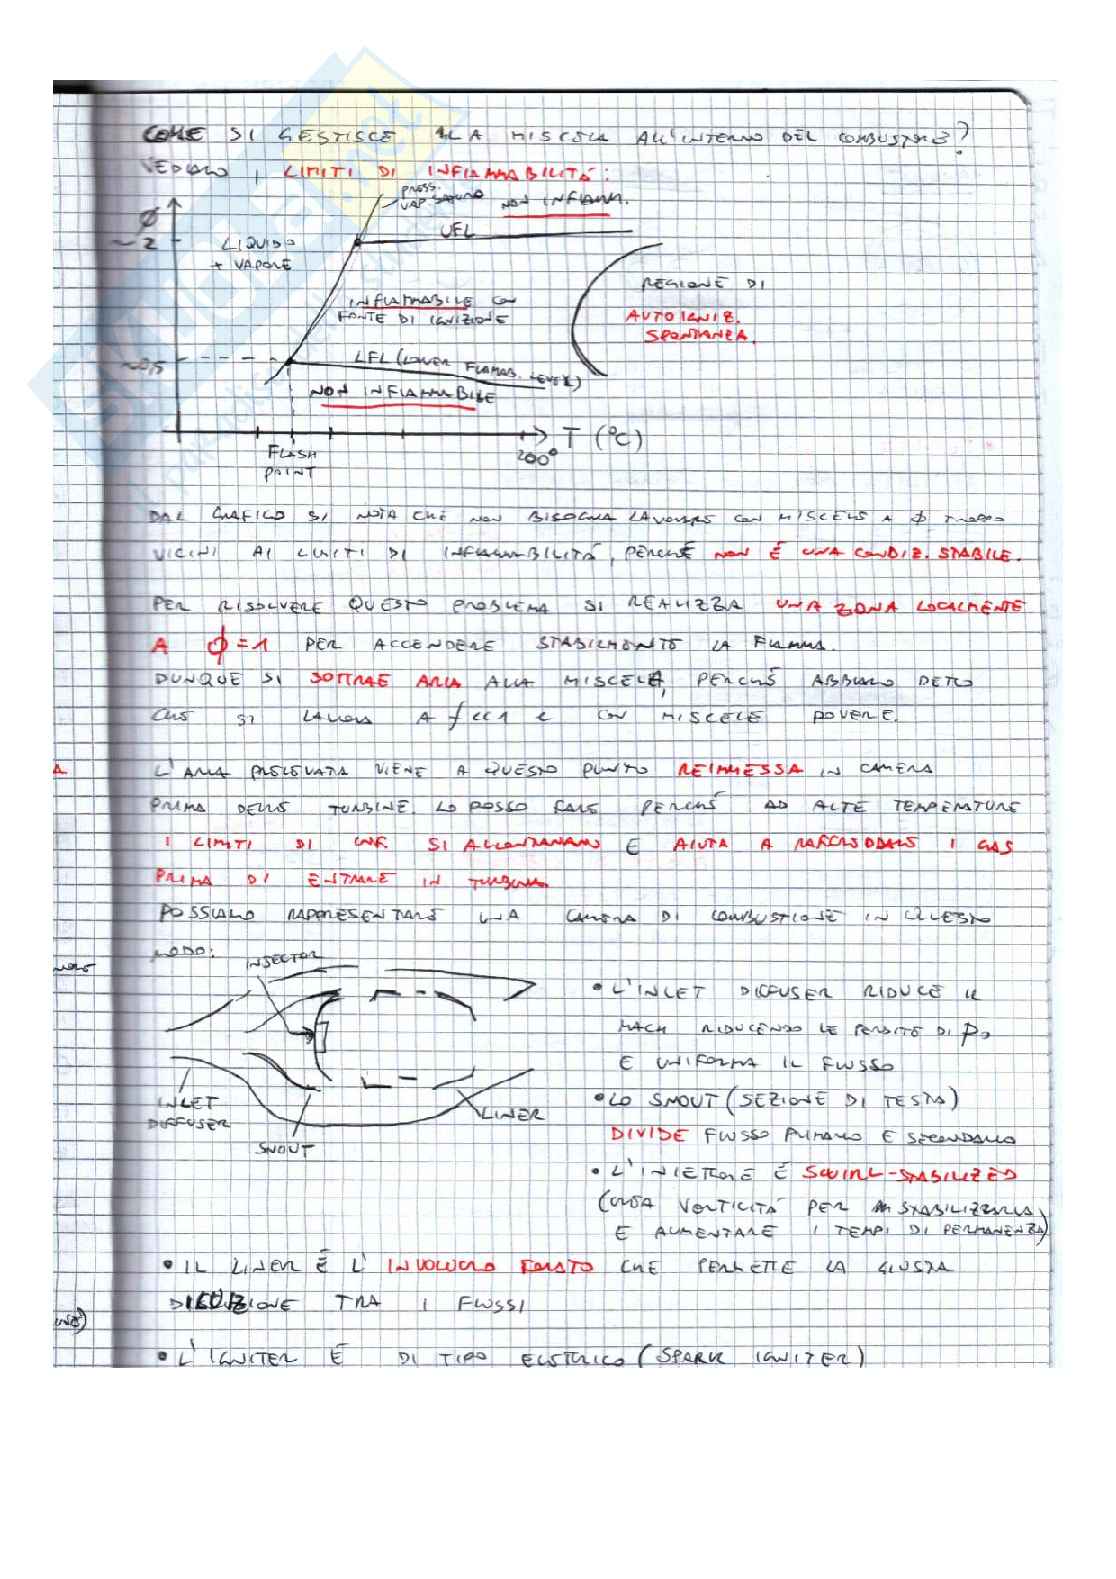 COME SI GESTISCE LA MISCELA ALL'INTERNO DEL COMBUSTORE?
VEDIAMO I LIMITI DI INFIAMMABILITÁ:
PRESS.
VAP. SATURO
NON INFIAMM.
ϕ
~2
LIQUIDO
+ VAPORE
UFL
REGIONE DI
AUTOIGNIZ.
SPONTANEA.
INFIAMMABILE CON
FONTE DI IGNIZIONE
~0,5
LFL (LOWER FLAMAB. LEVEL)
NON INFIAMMABILE
T (°C)
FLASH
POINT
200°
DAL GRAFICO SI NOTA CHE NON BISOGNA LAVORARE CON MISCELE A ϕ TROPPO
VICINI AI LIMITI DI INFIAMMABILITÁ, PERCHÉ NON É UNA CONDIZ. STABILE.
PER RISOLVERE QUESTO PROBLEMA SI REALIZZA UNA ZONA LOCALMENTE
A ϕ=1 PER ACCENDERE STABILMENTE LA FIAMMA.
DUNQUE SI SOTTRAE ARIA ALLA MISCELA, PERCHÉ ABBIAMO DETTO
CHE SI LAVORA A f<<1 E CON MISCELE POVERE.
L'ARIA PRELEVATA VIENE A QUESTO PUNTO REIMMESSA IN CAMERA
PRIMA DELLE TURBINE. LO POSSO FARE PERCHÉ AD ALTE TEMPERATURE
I LIMITI DI INF. SI ALLONTANANO E AIUTA A RAFFREDDARE I GAS
PRIMA DI ENTRARE IN TURBINA
POSSIAMO RAPPRESENTARE UNA CAMERA DI COMBUSTIONE IN QUESTO
MODO:
INJECTOR
INLET
DIFFUSER
SNOUT
LINER
• L'INLET DIFFUSER RIDUCE IL
MACH RIDUCENDO LE PERDITE DI P₀
E UNIFORMA IL FLUSSO
• LO SNOUT (SEZIONE DI TESTA)
DIVIDE FLUSSO PRIMARIO E SECONDARIO
• L'INIETTORE É SWIRL-STABILIZED
(CREA VORTICITÁ PER STABILIZZARLA
E AUMENTARE I TEMPI DI PERMANENZA)
• IL LINER É L'INVOLUCRO FORATO CHE PERMETTE LA GIUSTA
TRA I FLUSSI
• L'IGNITER É DI TIPO ELETTRICO (SPARK IGNITER)